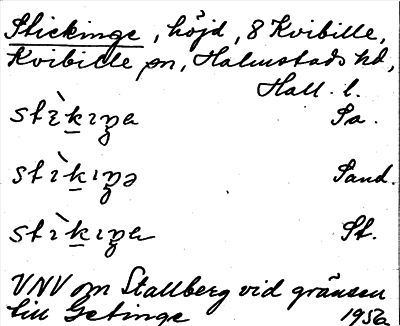 Stickinge, höjd, 8 Kvibille,
Kvibille sn, Halmstads hd,
Hall. l.
stìkıŋa Sa.
stìkıŋə Sand.
stìkıŋa St.
VNV om Stallberg vid gränsen
till Getinge 1956